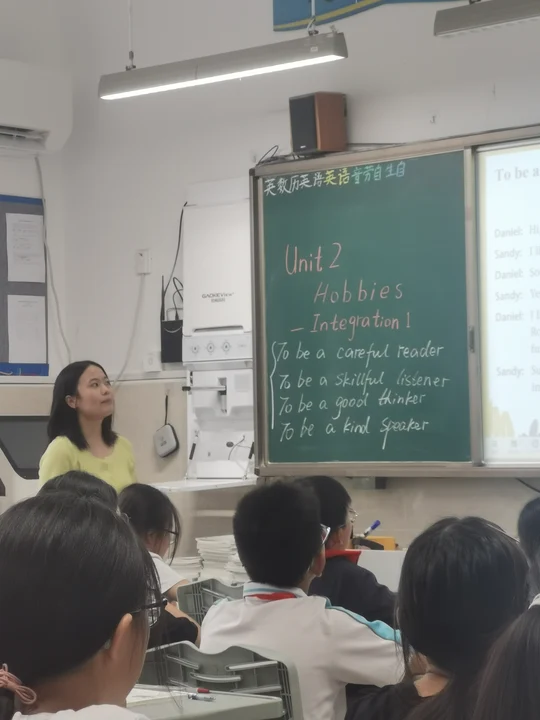 英数历英语英语音劳自生自
Unit 2
Hobbies
– Integration 1
To be a careful reader
To be a skillful listener
To be a good thinker
To be a kind speaker
To be a
Daniel: Hi
Sandy: I l
Daniel:
Sandy: Ye
Daniel: I l
Sandy: